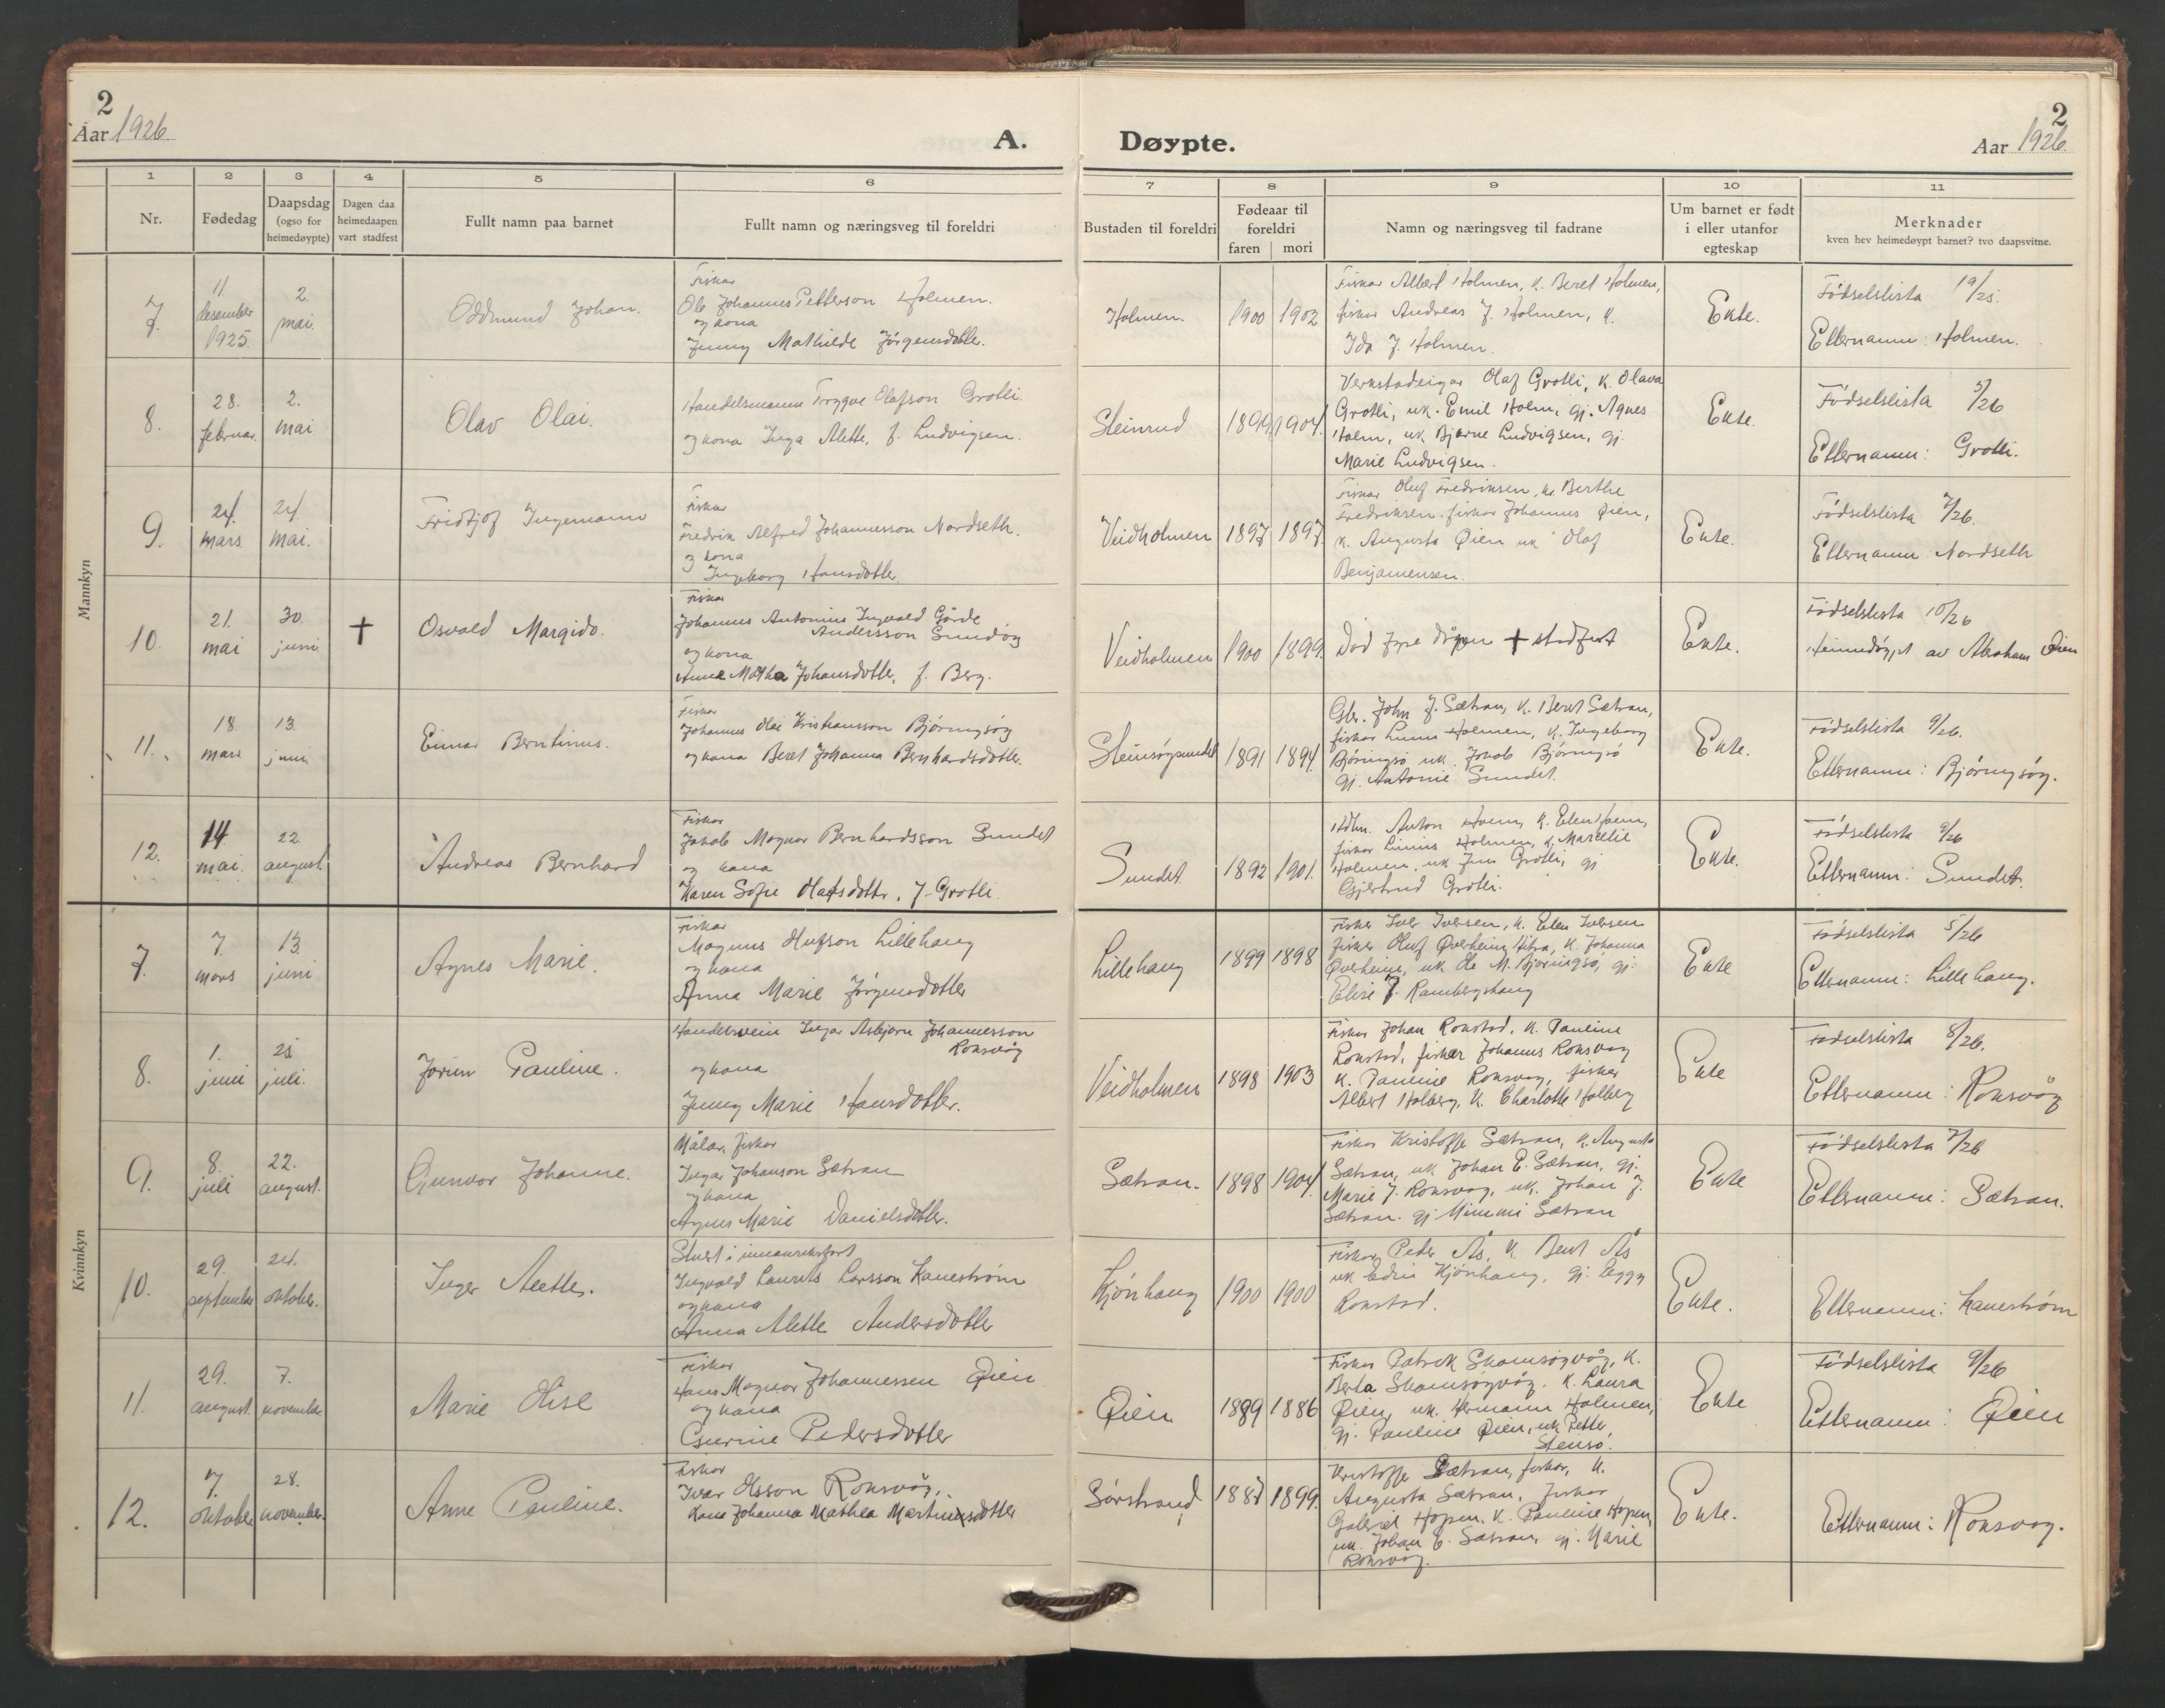 2
Aar 1926.
A.
Døypte.
2
Aar 1926.
1 2 3 4 5 6 7 8 9 10 11
Nr.
Fødedag
Daapsdag
(ogso for
heimedøypte)
Dagen daa
heimedaapen
vart stadfest
Fullt namn paa barnet
Fullt namn og næringsveg til foreldri
Bustaden til foreldri
Fødeaar til
foreldri
faren mori
Namn og næringsveg til fadrane
Um barnet er født
i eller utanfor
egteskap
Merknader
kven hev heimedøypt barnet? tvo daapsvitne.
Mannkyn
7.
11
desember
1925.
2.
mai.
Oddmund Johan.
Fiskar
Ole Johannes Petterson Holmen.
og kona
Jenny Mathilde Jørgensdotter.
Holmen.
1900 1902
Fiskar Albert Holmen, k. Beret Holmen,
fiskar Andreas J. Holmen, k.
Ida J. Holmen.
Ekte.
Fødselslista 19/25.
Etternamn: Holmen.
8.
28.
februar.
2.
mai
Olav Olai.
Handelsmann Trygve Olafson Grotli.
og kona Inga Alette, f. Ludvigsen.
Steinrud
1899 1904.
Verkstadeigar Olaf Grotli, k. Olava
Grotli, uk. Emil Holm, gj. Agnes
Holm, uk Bjarne Ludvigsen, gj.
Marie Ludvigsen.
Ekte.
Fødselslista 5/26
Etternamn: Grotli.
9.
24.
mars
24.
mai.
Fridtjof Ingemann
Fiskar
Fredrik Alfred Johannesson Nordseth.
og kona
Ingeborg Hansdotter.
Veidholmen
1897 1897.
Fiskar Oluf Fredriksen, k. Berthe
Fredriksen. fiskar Johannes Øien,
k. Augusta Øien uk Olaf
Benjaminsen.
Ekte.
Fødselslista 7/26.
Etternamn Nordseth
10.
21.
mai
30.
juni
†
Osvald Margido.
Fiskar
Johannes Antonius Ingvald Gårde
Andersson Sundøy
og kona
Anne Mathea Johansdotter, f. Berg.
Veidholmen
1900 1899.
Død fyre dåpen † stadfest
Ekte.
Fødselslista 10/26
Heimedøypt av Abraham Øien
11.
18.
mars
13.
juni.
Einar Berntinus.
Fiskar
Johannes Olai Kristiansson Bjørnsøy
og kona Beret Johanna Bernhardsdotter.
Steinsøysundet
1891 1894.
Gbr. John J. Sætran, k. Beret Sætran,
fiskar Linus Holmen, k. Ingeborg
Bjørnsø uk. Jakob Bjørnsø
gj. Antonie Sundet.
Ekte.
Fødselslista 9/26.
Etternamn: Bjørnsøy.
12.
14.
mai.
22.
august.
Andreas Bernhard
Fiskar
Jakob Magnar Bernhardsson Sundet
og kona
Karen Sofie Olafsdotter. f. Grotli.
Sundet.
1892 1901.
Anton Hoem, k. Elen Hoem,
fiskar Linus Holmen, k. Marelie
Holmen, uk Jens Grotli, gj
Gjertrud Grotli.
Ekte.
Fødselslista 9/26
Etternamn: Sundet.
Kvinnkyn
7.
7.
mars
13.
juni
Agnes Marie.
Fiskar
Magnus Olufson Lillehaug
og kona
Anna Marie Jørgensdotter
Lillehaug
1899 1898
Fisker Iver Iversen, k. Elen Iversen
fisker Oluf Øverheim, Hitra, k. Johanna
Øverheim, uk Ole M. Bjørnsø, gj.
Elise J. Rambergshaug
Ekte
Fødselslista 5/26
Etternamn: Lillehaug.
8.
1.
juni
25
juli.
Jorun Pauline.
Handelsvein Ingar Asbjørn Johannesson
Roksvåg
og kona
Jenny Marie Hansdotter.
Veidholmen
1898 1903
Fiskar Johan Rokstad, k. Pauline
Rokstad, fisker Johannes Roksvåg
k. Pauline Roksvåg, fisker
Albert Holberg, k. Charlotte Holberg
Ekte
Fødselslista 8/26.
Etternamn: Roksvåg
9.
8.
juli
22.
august.
Gunvor Johanne.
Målar, fiskar
Ingar Johanson Sætran
og kona
Agnes Marie Danielsdotter.
Sætran.
1898 1904.
Fiskar Kristoffer Sætran, k. Augusta
Sætran, uk Johan E. Sætran, gj.
Marie J. Roksvåg, uk. Johan J.
Sætran. gj Mimmi Sætran
Ekte
Fødselslista 7/26
Etternamn: Sætran.
10.
29.
september
24.
oktober.
Inger Alette.
Stuert i innanriksfart
Ingvald Laurits Larsson Kanestrøm
og kona
Anna Alette Andersdotter
Kjønhaug
1900 1900
Fiskar Peder Ås, k Beret Ås
uk Edvin Kjønhaug, gj. Peggy
Rokstad.
Ekte.
Etternamn: Kanestrøm
11.
29.
august.
7.
november
Marie Olise
Fiskar
Hans Magnar Johannessen Øien
og kona
Eserine Pedersdotter
Øien
1889 1886
Fiskar Patrik Skomsøyvåg, k.
Berta Skomsøyvåg. k. Laura
Øien, uk. Hermann Holmen,
gj. Pauline Øien, uk. Petter
Stensø.
Ekte
Fødselslista 9/26
Etternamn: Øien
12.
7.
oktober
28.
november.
Anne Pauline.
Fiskar
Ivar Olsson Roksvåg,
Kona Johanna Mathea Martinsdotter
Sørstrand
1887 1899.
Kristoffer Sætran, fiskar, k.
Augusta Sætran, fiskar
Gabriel Hopen, k. Pauline Hopen,
uk. Johan E. Sætran, gj. Marie
Roksvåg.
Ekte.
Etternamn: Roksvåg.